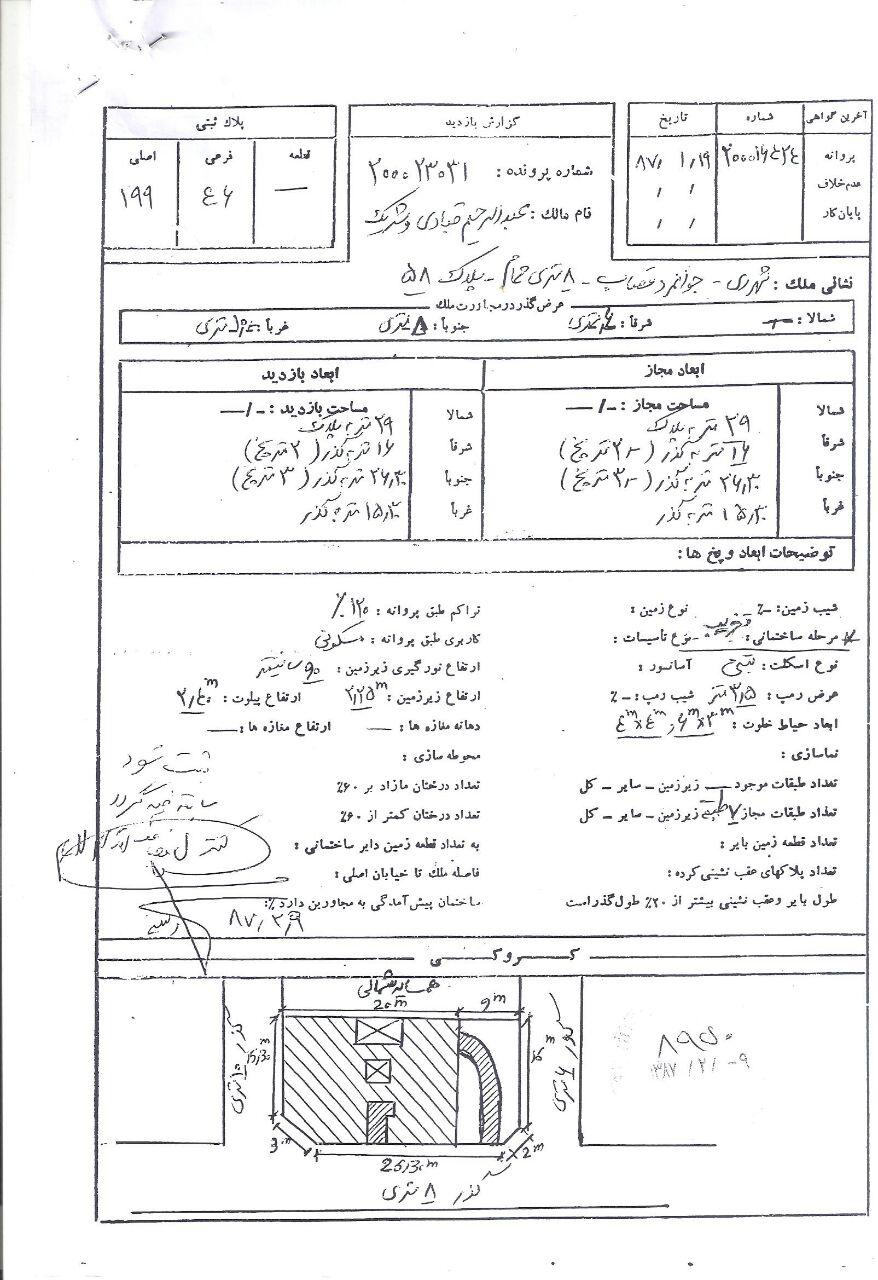 آخرین گواهی شماره تاریخ
پروانه ۸۷/۱/۱۹
عدم خلاف / /
پایان کار / /
گزارش بازدید
شماره پرونده : ۲۰۰۰۲۳۰۳۱
نام مالک : عبدالرحیم قبادی و شریک
پلاک ثبتی
قطعه فرعی اصلی
— ۶۴ ۱۹۹
نشانی ملک : شهرری - جوانمرد قصاب - ۸ متری - پلاک ۵۸
عرض گذر در مجاورت ملک
شمالا : — شرقا : ۶ متری جنوبا : ۸ متری غربا : ۱۰ متری
ابعاد مجاز
مساحت مجاز : -/—
شمالا ۲۹ متر به پلاک
شرقا ۱۶ متر به گذر (۲ متر پخ)
جنوبا ۲۶٫۳۰ متر به گذر (۳ متر پخ)
غربا ۱۵٫۳۰ متر به گذر
ابعاد بازدید
مساحت بازدید : -/—
شمالا ۲۹ متر به پلاک
شرقا ۱۶ متر به گذر (۲ متر پخ)
جنوبا ۲۶٫۳۰ متر به گذر (۳ متر پخ)
غربا ۱۵٫۳۰ متر به گذر
توضیحات ابعاد و پخ ها :
شیب زمین : -٪ نوع زمین :
مرحله ساختمانی : تخریب نوع تأسیسات :
نوع اسکلت : بتنی آسانسور :
عرض رمپ : ۳٫۵ متر شیب رمپ : -٪
ابعاد حیاط خلوت : ۶m×۳m , ۴m×۴m
نماسازی :
تعداد طبقات موجود — زیرزمین - سایر - کل
تعداد طبقات مجاز ۷ طبقه زیرزمین - سایر - کل
تعداد قطعه زمین بایر :
تعداد پلاکهای عقب نشینی کرده :
طول بایر و عقب نشینی بیشتر از ۲۰٪ طول گذر است
تراکم طبق پروانه : ۱۲۰٪
کاربری طبق پروانه : مسکونی
ارتفاع نورگیری زیرزمین : ۹۰ سانتیمتر
ارتفاع زیرزمین : ۳٫۲۵m ارتفاع پیلوت : ۲٫۴۰m
دهانه مغازه ها : — ارتفاع مغازه ها : —
محوطه سازی :
تعداد درختان مازاد بر ۶۰٪
تعداد درختان کمتر از ۶۰٪
به تعداد قطعه زمین دایر ساختمانی :
فاصله ملک تا خیابان اصلی :
ساختمان پیش آمدگی به مجاورین دارد ٪:
ثبت شود
کنترل
۸۷/۲/۹
کروکی
همسایه شمالی
20m 9m
گذر ۱۰ متری
15/30m
16m
گذر ۶ متری
3m 26/30m 2m
گذر ۸ متری
۸۹۵۰
۱۳۸۷/۲/-۹